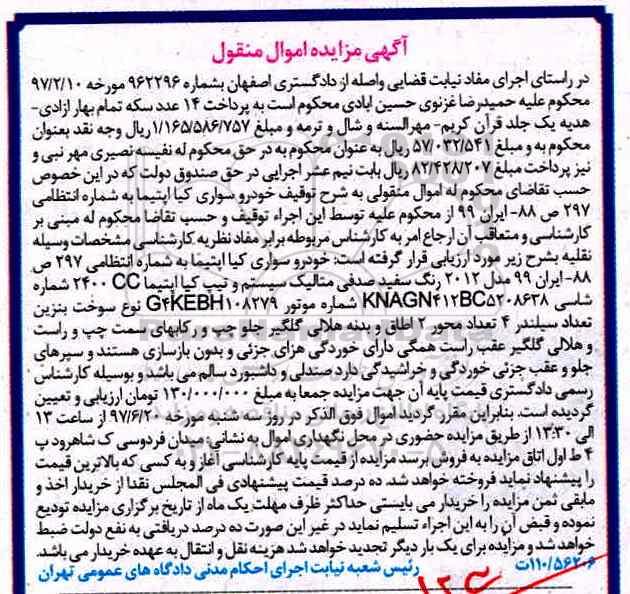 آگهی مزایده اموال منقول
در راستای اجرای مفاد نیابت قضایی واصله از دادگستری اصفهان بشماره ۹۶۲۲۹۶ مورخه ۹۷/۲/۱۰
محکوم علیه حمیدرضا غزنوی حسین ابادی محکوم است به پرداخت ۱۴ عدد سکه تمام بهار ازادی-
هدیه یک جلد قرآن کریم- مهرالسنه و شال و ترمه و مبلغ ۱/۱۶۵/۵۸۶/۷۵۷ ریال وجه نقد بعنوان
محکوم به و مبلغ ۵۷/۰۳۲/۵۴۱ ریال به عنوان محکوم به در حق محکوم له نفیسه نصیری مهر نبی و
نیز پرداخت مبلغ ۸۲/۴۲۸/۲۰۷ ریال بابت نیم عشر اجرایی در حق صندوق دولت که در این خصوص
حسب تقاضای محکوم له اموال منقولی به شرح توقیف خودرو سواری کیا اپتیما به شماره انتظامی
۲۹۷ ص ۸۸- ایران ۹۹ از محکوم علیه توسط این اجراء توقیف و حسب تقاضا محکوم له مبنی بر
کارشناسی و متعاقب آن ارجاع امر به کارشناس مربوطه برابر مفاد نظریه کارشناسی مشخصات وسیله
نقلیه بشرح زیر مورد ارزیابی قرار گرفته است: خودرو سواری کیا اپتیما به شماره انتظامی ۲۹۷ ص
۸۸- ایران ۹۹ مدل ۲۰۱۲ رنگ سفید صدفی متالیک سیستم و تیپ کیا اپتیما CC ۲۴۰۰ شماره
شاسی KNAGN۴۱۲BC۵۲۰۸۶۳۸ شماره موتور G۴KEBH۱۰۸۲۷۹ نوع سوخت بنزین
تعداد سیلندر ۴ تعداد محور ۲ اطاق و بدنه هلالی گلگیر جلو چپ و رکابهای سمت چپ و راست
و هلالی گلگیر عقب راست همگی دارای خوردگی هزای جزئی و بدون بازسازی هستند و سپرهای
جلو و عقب جزئی خوردگی و خراشیدگی دارد صندلی و داشبورد سالم می باشد و بوسیله کارشناس
رسمی دادگستری قیمت پایه آن جهت مزایده جمعا به مبلغ ۱۳۰/۰۰۰/۰۰۰ تومان ارزیابی و تعیین
گردیده است. بنابراین مقرر گردید اموال فوق الذکر در روز سه شنبه مورخه ۹۷/۶/۲۰ از ساعت ۱۳
الی ۱۳:۳۰ از طریق مزایده حضوری در محل نگهداری اموال به نشانی: میدان فردوسی ک شاهرود پ
۴ ط اول اتاق مزایده به فروش برسد مزایده از قیمت پایه کارشناسی آغاز و به کسی که بالاترین قیمت
را پیشنهاد نماید فروخته خواهد شد. ده درصد قیمت پیشنهادی فی المجلس نقدا از خریدار اخذ و
مابقی ثمن مزایده را خریدار می بایستی حداکثر ظرف مهلت یک ماه از تاریخ برگزاری مزایده تودیع
نموده و قبض آن را به این اجراء تسلیم نماید در غیر این صورت ده درصد دریافتی به نفع دولت ضبط
خواهد شد و مزایده برای یک بار دیگر تجدید خواهد شد هزینه نقل و انتقال به عهده خریدار می باشد.
۱۱۰/۵۶۲۰۶ت رئیس شعبه نیابت اجرای احکام مدنی دادگاه های عمومی تهران